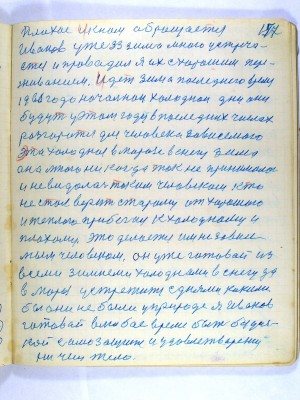 157
Плохое Иском обращается
Иванов уже 33 зимы много встреча-
ет и проводил я их с хорошим пере-
живанием. Идет зима последнего время
1966 года начаном холодном дни они
будут у этом годе в последних числах
разгораться для человека зависемого
Эта холодное в морозе в снегу зима
она много никогда так не принималась
и невидалась таким человеком кто
нестал верить старому от хорошого
и теплого прибегну к холодному и
плохому. Это делается им независи-
мым человеком, он уже готовай из
всеми зимнеми холодками в снегу да
в мороз устретить с днями какими
бы они не были у природе я Иванов
готовай в любое время быть будил-
кой самозащити и условлетворени-
ри чем тело.